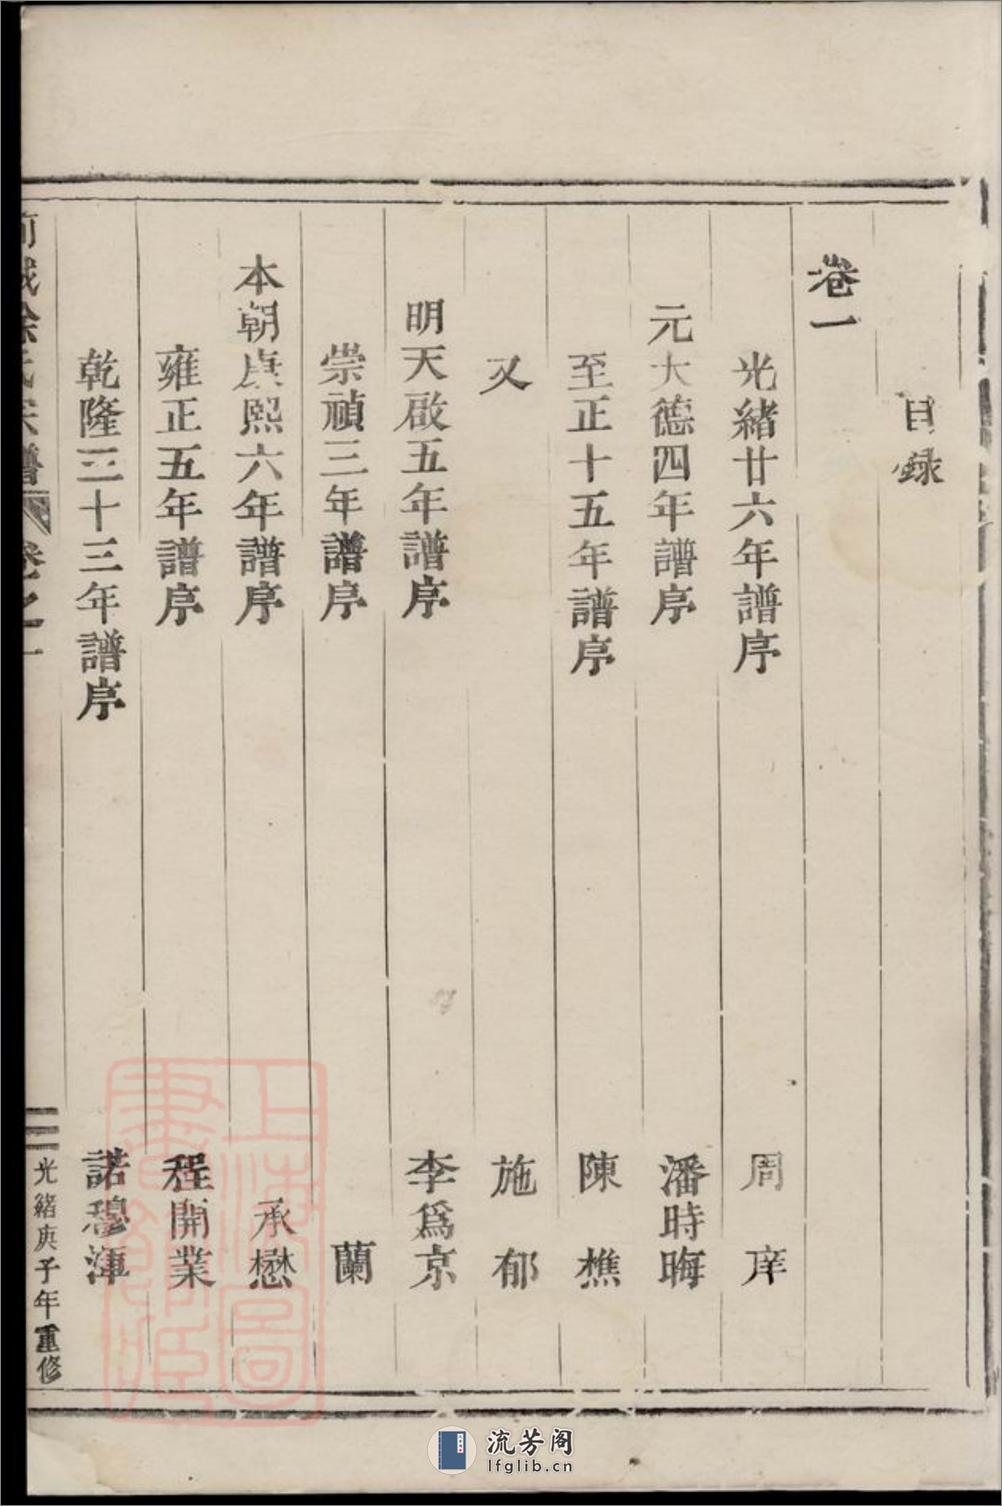 目錄
卷一
光緒廿六年譜序 周庠
元大德四年譜序 潘時晦
至正十五年譜序 陳樵
又 施郁
明天啟五年譜序 李爲京
崇禎三年譜序 蘭
本朝康熙六年譜序 承懋
雍正五年譜序 程開業
乾隆三十三年譜序 諾穆渾
徐氏宗譜 卷之一 光緒庚子年重修
流芳阁
lfglib.cn